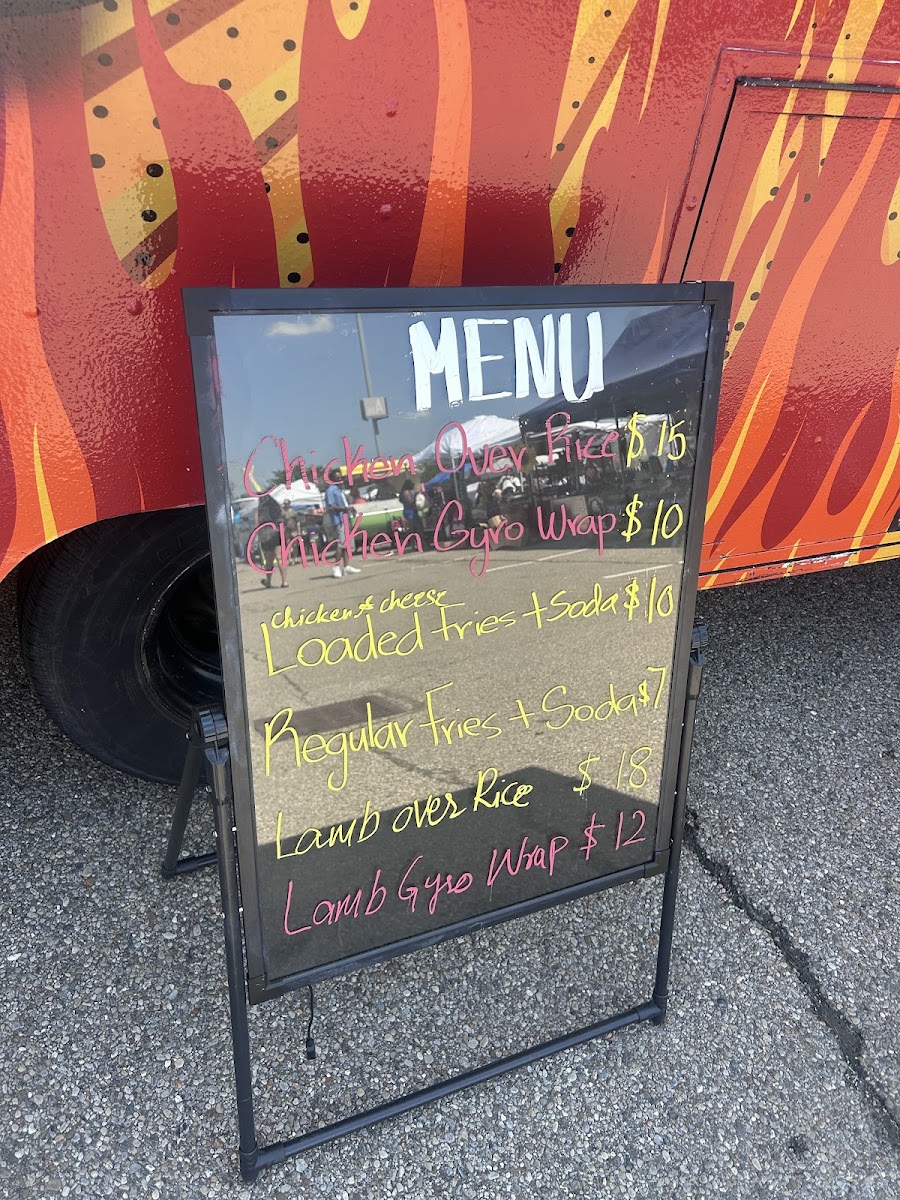 MENU
Chicken Over Rice $15
Chicken Gyro Wrap $10
chicken & cheese
Loaded Fries + Soda $10
Regular Fries + Soda $7
Lamb over Rice $18
Lamb Gyro Wrap $12